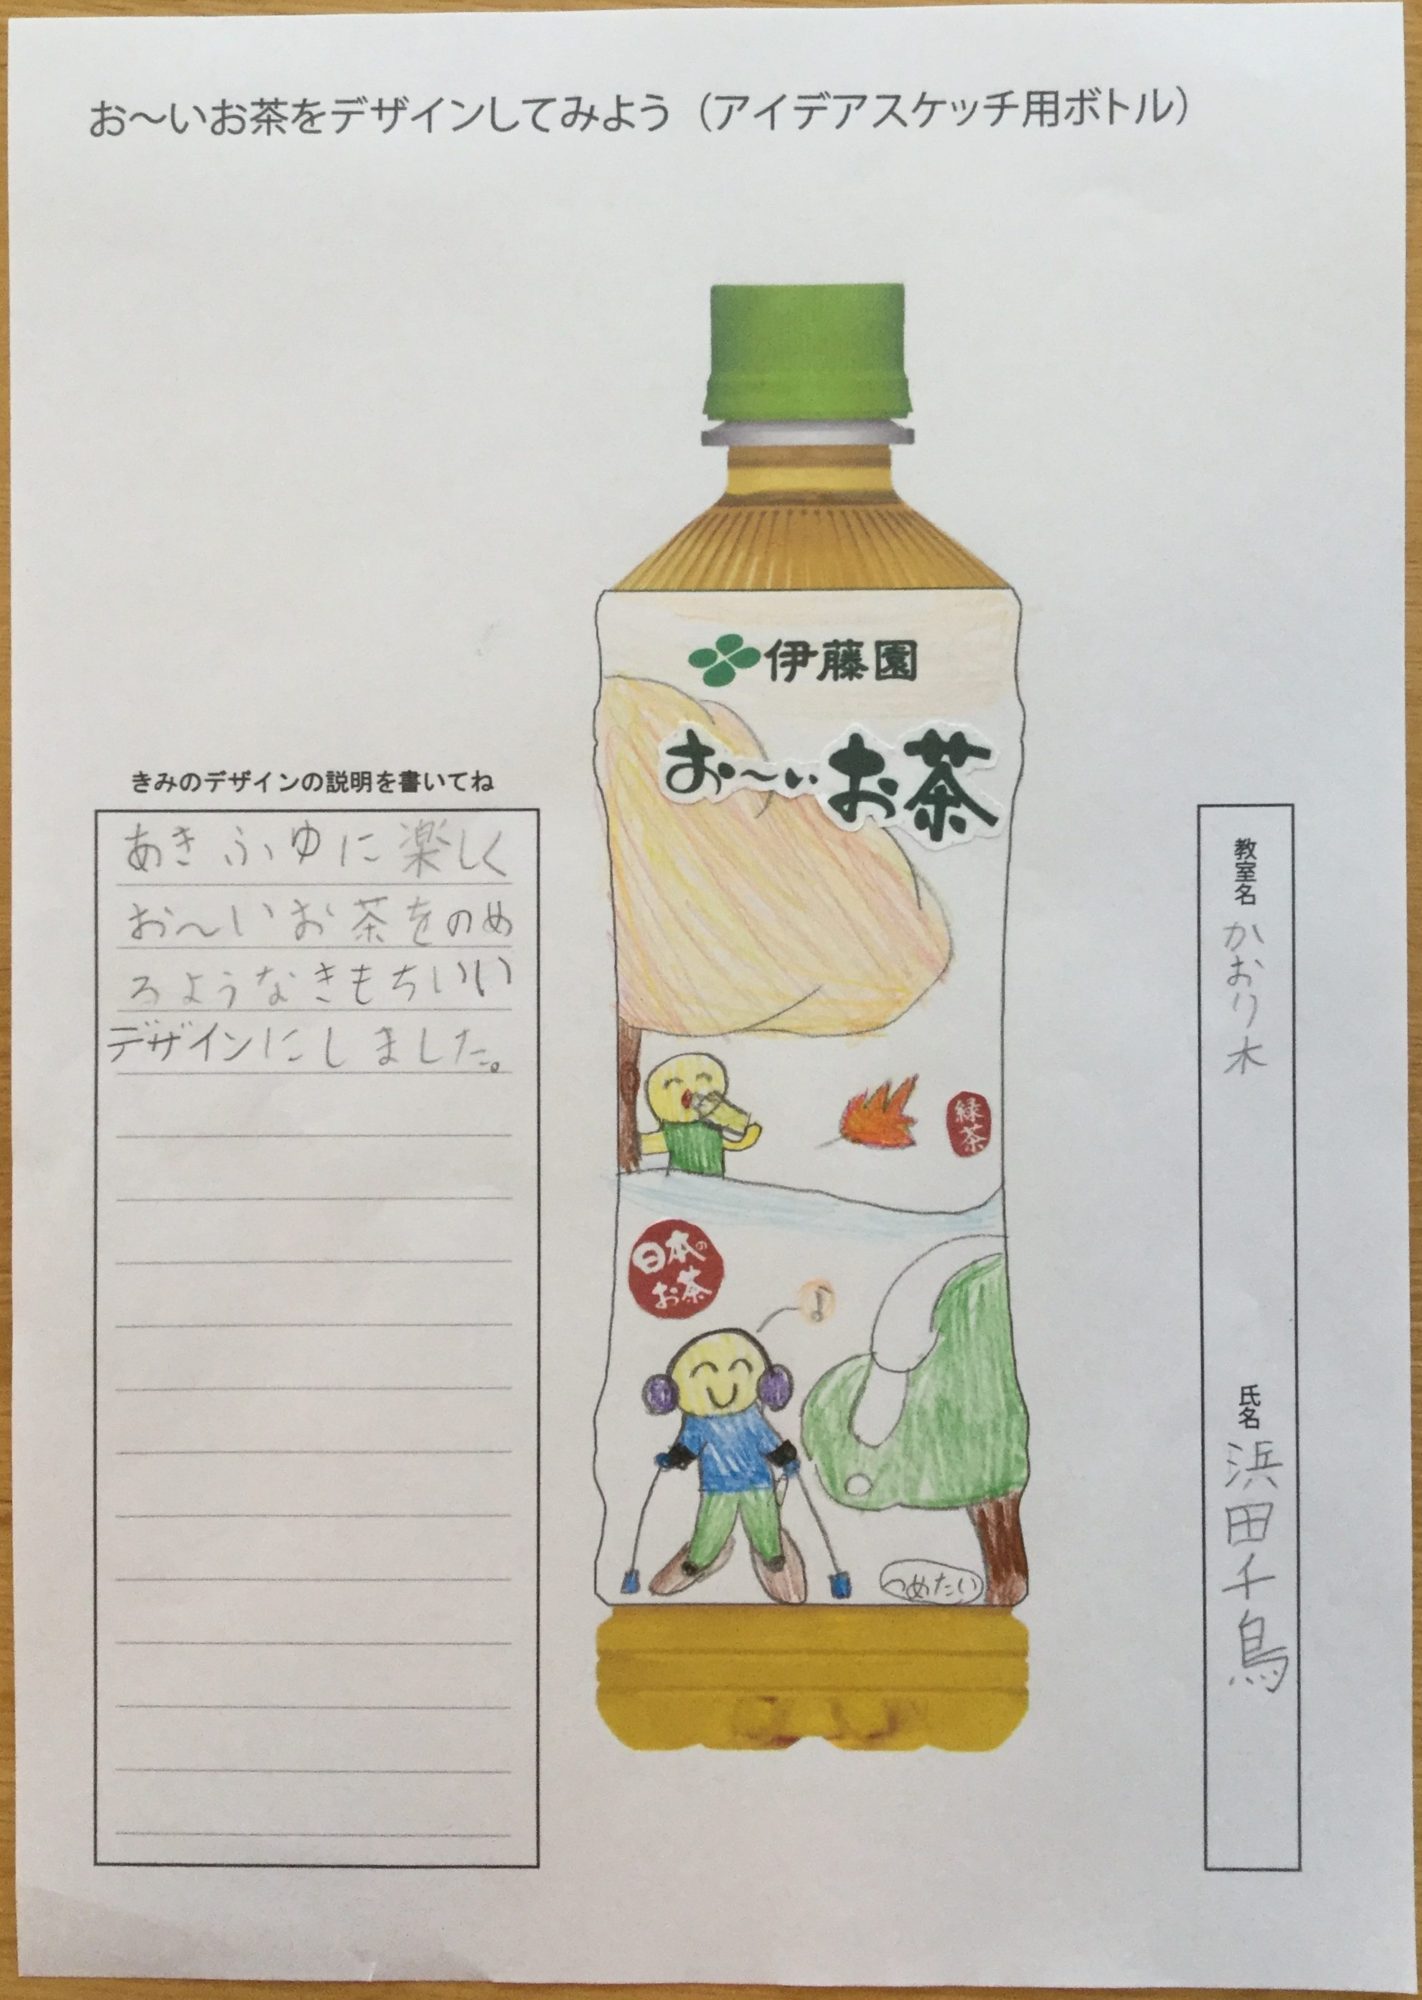 お〜いお茶をデザインしてみよう（アイデアスケッチ用ボトル）
伊藤園
お〜いお茶
緑茶
日本のお茶
つめたい
きみのデザインの説明を書いてね
あきふゆに楽しく
お〜いお茶をのめ
るようなきもちいい
デザインにしました。
教室名 かおり木
氏名 浜田千鳥